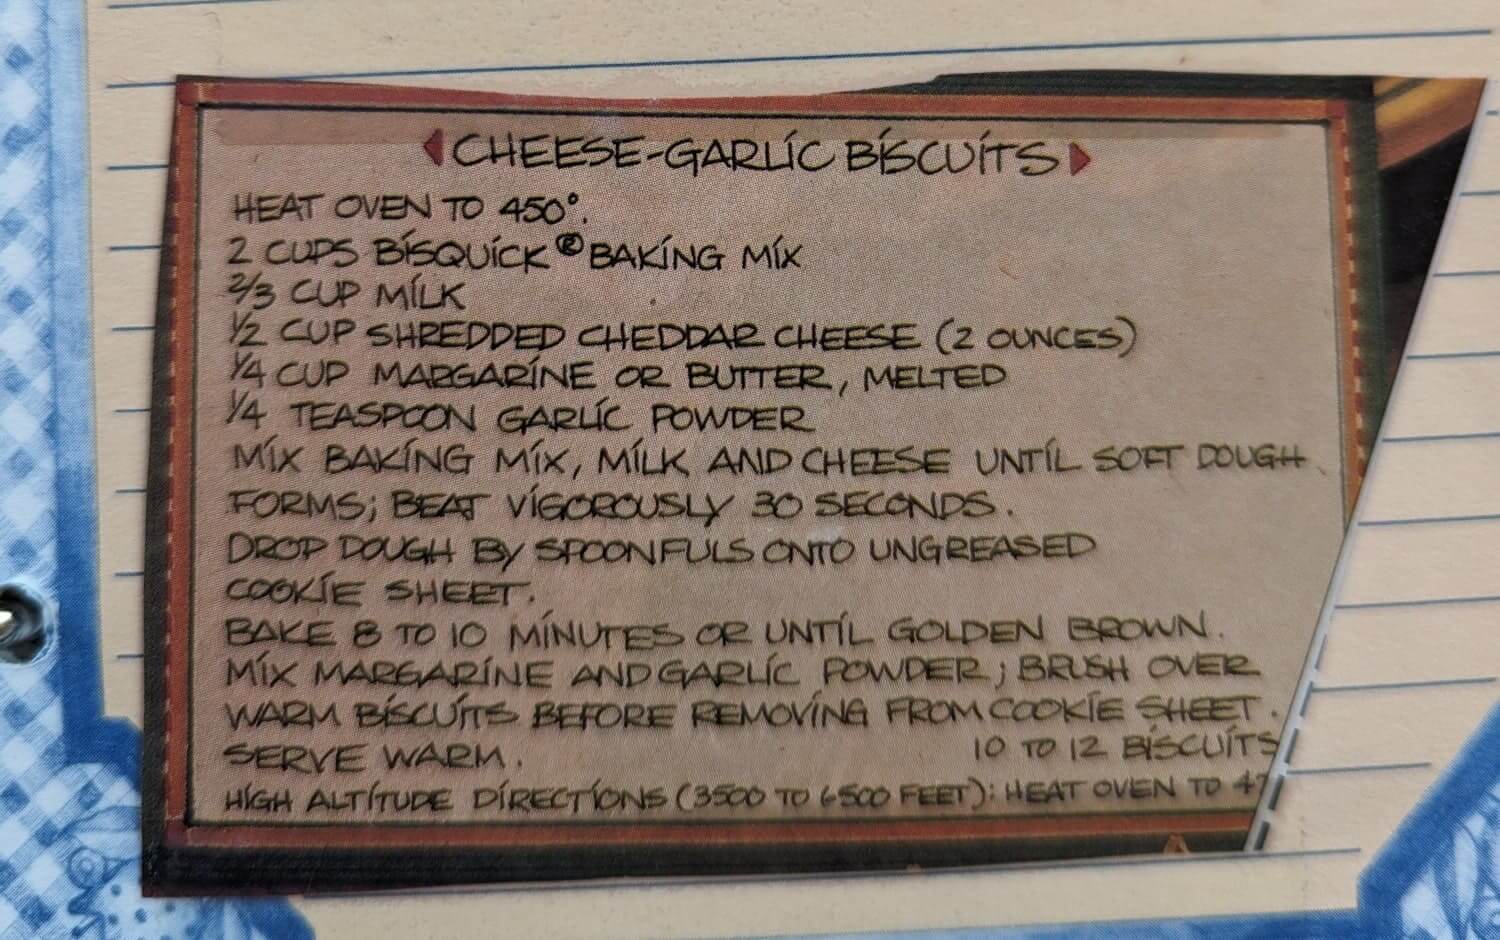 CHEESE-GARLIC BISCUITS
HEAT OVEN TO 450°.
2 CUPS BISQUICK® BAKING MIX
2/3 CUP MILK
1/2 CUP SHREDDED CHEDDAR CHEESE (2 OUNCES)
1/4 CUP MARGARINE OR BUTTER, MELTED
1/4 TEASPOON GARLIC POWDER
MIX BAKING MIX, MILK AND CHEESE UNTIL SOFT DOUGH
FORMS; BEAT VIGOROUSLY 30 SECONDS.
DROP DOUGH BY SPOONFULS ONTO UNGREASED
COOKIE SHEET.
BAKE 8 TO 10 MINUTES OR UNTIL GOLDEN BROWN.
MIX MARGARINE AND GARLIC POWDER; BRUSH OVER
WARM BISCUITS BEFORE REMOVING FROM COOKIE SHEET.
SERVE WARM. 10 TO 12 BISCUITS
HIGH ALTITUDE DIRECTIONS (3500 TO 6500 FEET): HEAT OVEN TO